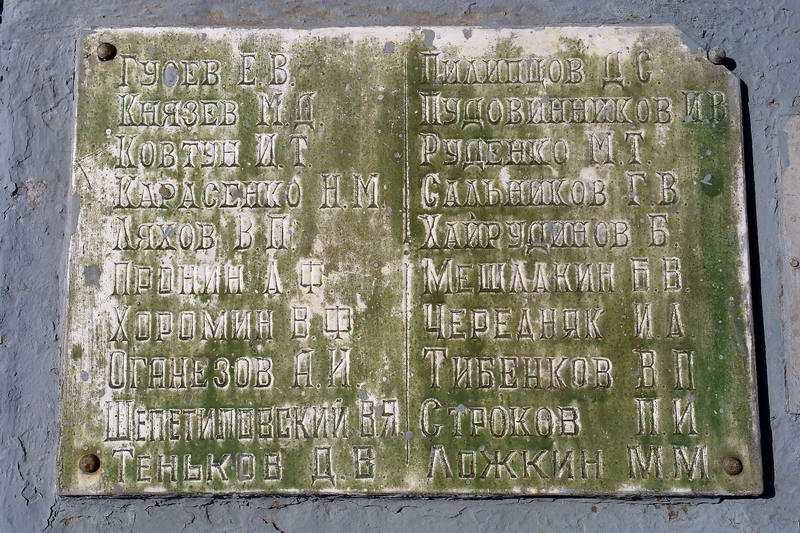 Гусев Е.В.
Князев М.Д.
Ковтун И.Т.
Карасенко Н.М.
Ляхов В.П.
Пронин А.Ф.
Хоромин В.Ф.
Оганезов А.И.
Шепетиповский В.Я.
Теньков Д.В.
Пилипцов Д.С.
Пудовинников И.В.
Руденко М.Т.
Сальников Г.В.
Хайрудинов Б.
Мешлакин Б.В.
Чередняк И.А.
Тибенков В.П.
Строков П.И.
Ложкин М.М.